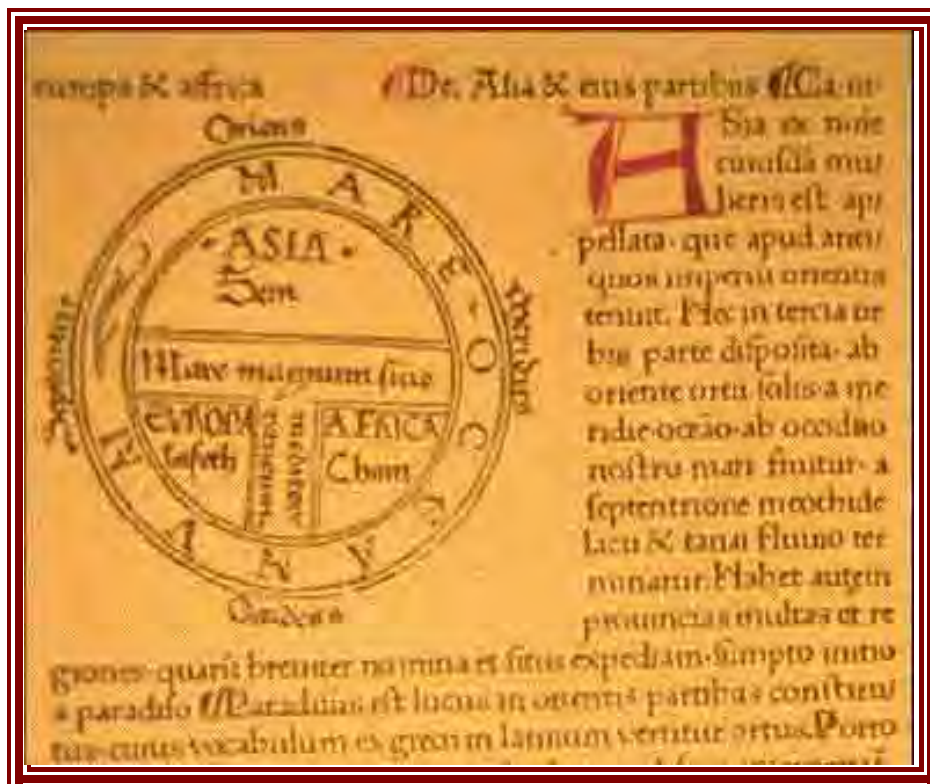 europa & affrica
De. Asia & eius partibus Ca. iii
Oriens
MARE OCEANUM
ASIA
Sem
Mare magnum sive
EVROPA
Iafeth
mediter
raneum
AFRICA
Cham
Septentrio
Meridies
Occidens
ASia ex noie
cuiusdā mu/
lieris est ap/
pellata. que apud anti/
quos imperiū orientis
tenuit. Hec in tercia or
bis parte disposita. ab
oriente ortu solis. a me
ridie. oceāo. ab occiduo
nostro mari finitur. a
septentrione meothide
lacu & tanai fluuio ter
minatur. Habet autem
prouincias multas et re
giones. quarū breuiter nomina et situs expediam. sumpto initio
a paradiso Paradisus est locus in orientis partibus constitu/
tus. cuius vocabulum ex greco in latinum vertitur ortus. Porro